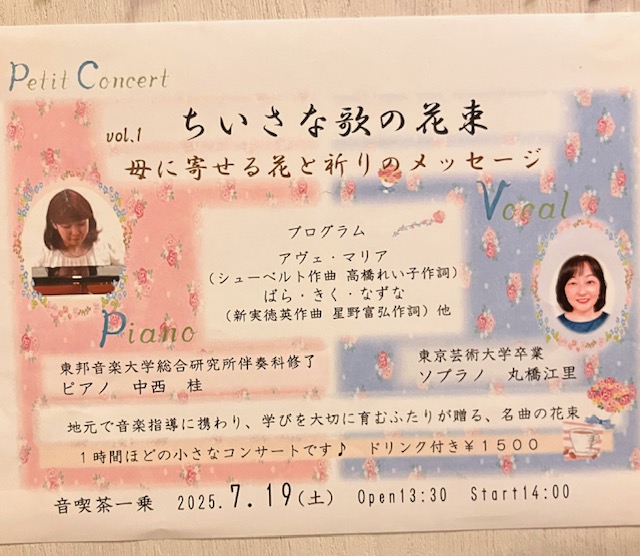 Petit Concert
vol.1 ちいさな歌の花束
母に寄せる花と祈りのメッセージ
Vocal
プログラム
アヴェ・マリア
(シューベルト作曲 高橋れい子作詞)
ばら・きく・なずな
(新実徳英作曲 星野富弘作詞) 他
Piano
東邦音楽大学総合研究所伴奏科修了
ピアノ 中西 桂
東京芸術大学卒業
ソプラノ 丸橋江里
地元で音楽指導に携わり、学びを大切に育むふたりが贈る、名曲の花束
1時間ほどの小さなコンサートです♪ ドリンク付き¥1500
音喫茶一乗 2025.7.19(土) Open13:30 Start14:00